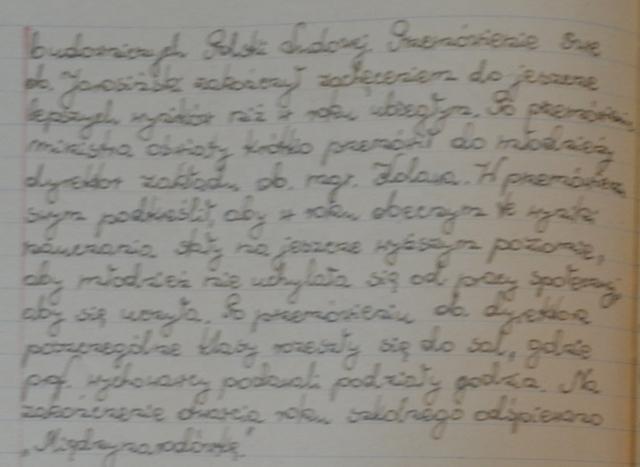 budowniczych Polski Ludowej. Przemówienie swe
ob. Jarosiński zakończył zachęceniem do jeszcze
lepszych wyników niż w roku ubiegłym. Po przemówieniu
ministra oświaty krótko przemówił do młodzieży
dyrektor zakładu ob. mgr. W przemówieniu
swym podkreślił, aby w roku obecnym te wyniki
nauczania stały na jeszcze wyższym poziomie,
aby młodzież nie uchylała się od pracy społecznej,
aby się uczyła. Po przemówieniu ob. dyrektora
poszczególne klasy rozeszły się do sal, gdzie
prof. wychowawcy podawali podziały godzin. Na
zakończenie otwarcia roku szkolnego odśpiewano
„Międzynarodówkę"